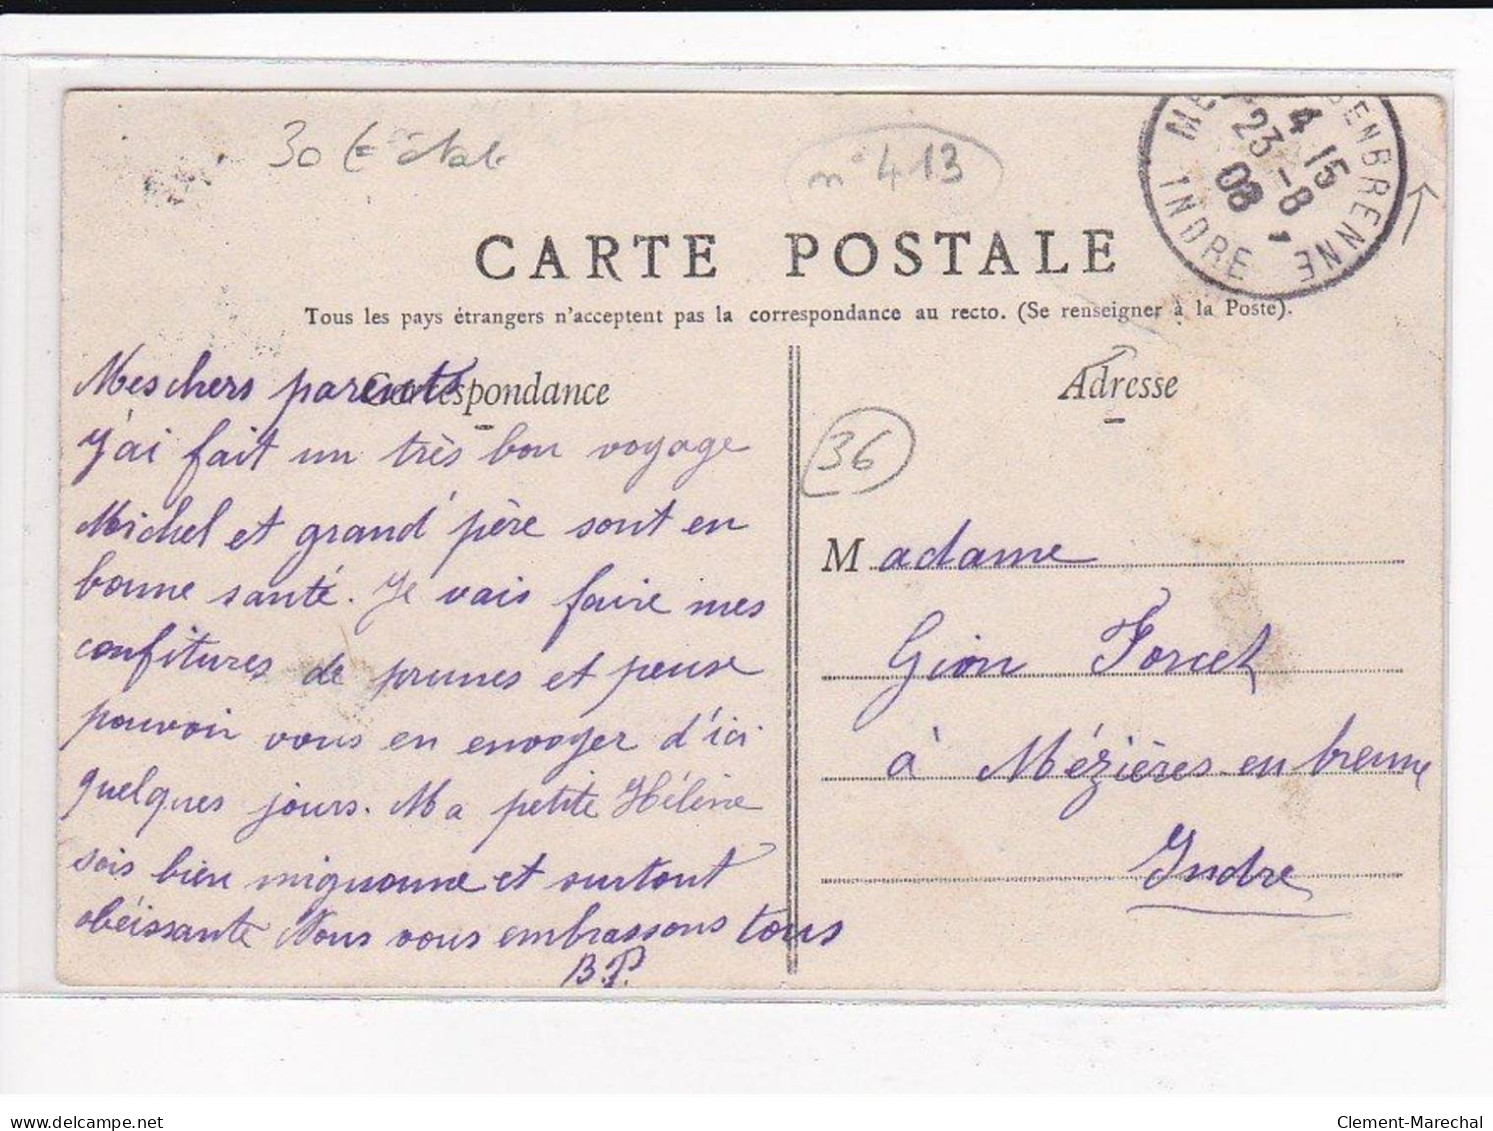 30 €
n° 413
CARTE POSTALE
Tous les pays étrangers n'acceptent pas la correspondance au recto. (Se renseigner à la Poste).
Correspondance
Mes chers parents
J'ai fait un très bon voyage
Michel et grand'père sont en
bonne santé. Je vais faire mes
confitures de prunes et pense
pouvoir vous en envoyer d'ici
quelques jours. Ma petite Hélène
sois bien mignonne et surtout
obéissante Nous vous embrassons tous
B.P.
Adresse
36
Madame
Gion Forcet
à Mézières-en brenne
Indre
4 15
23 -8
08
INDRE
ENBRENNE
delcampe.net
Clement-Marechal